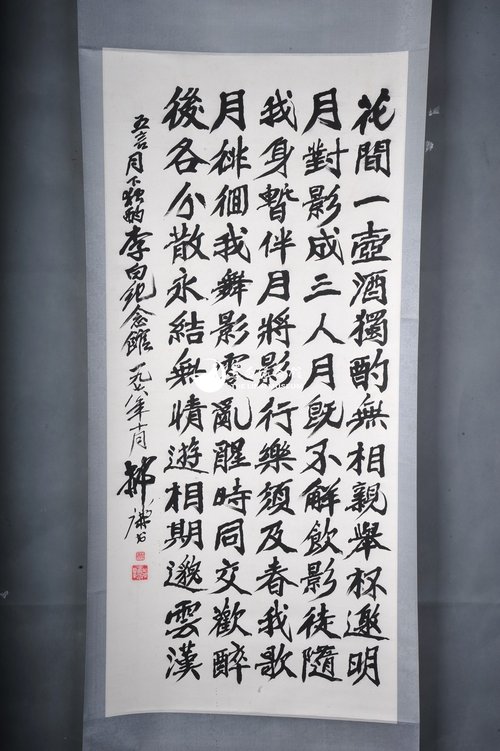 花間一壺酒獨酌無相親舉杯邀明
月對影成三人月既不解飲影徒隨
我身暫伴月將影行樂須及春我歌
月徘徊我舞影零亂醒時同交歡醉
後各分散永結無情遊相期邈雲漢
五言月下独酌 李白纪念館